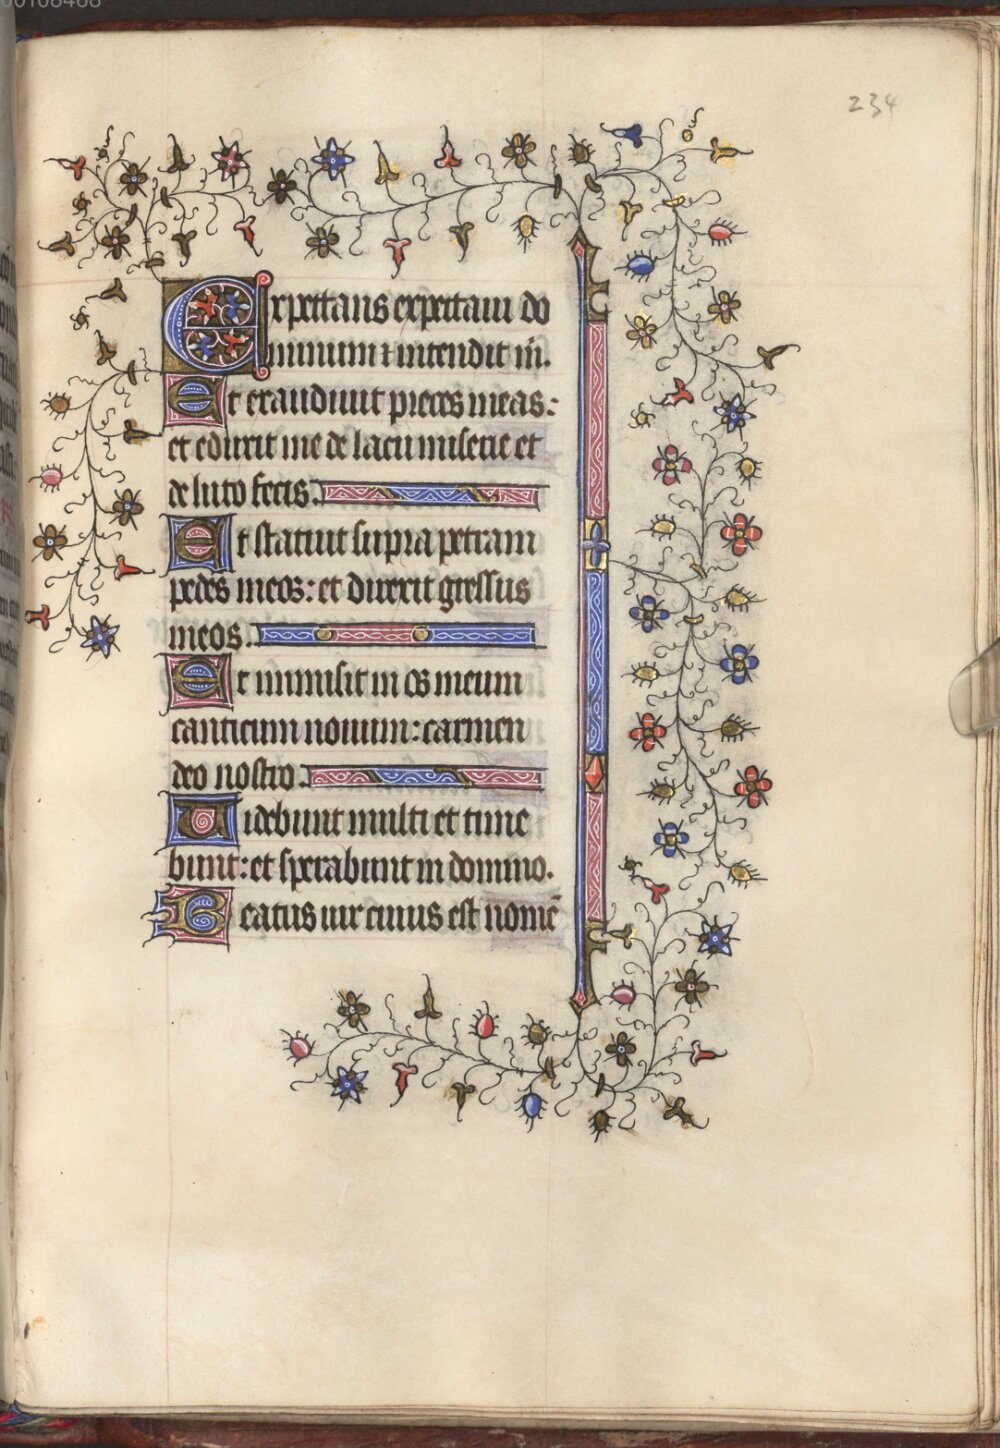 00108468
234
Expectans expectaui do
minum ⁊ intendit m̄.
Et exaudiuit preces meas:
et eduxit me de lacu miserie et
de luto fecis.
Et statuit supra petram
pedes meos: et direxit gressus
meos.
Et inmisit in os meum
canticum nouum: carmen
deo nostro.
Uidebunt multi et time
bunt: et sperabunt in domino.
Beatus uir cuius est nomē